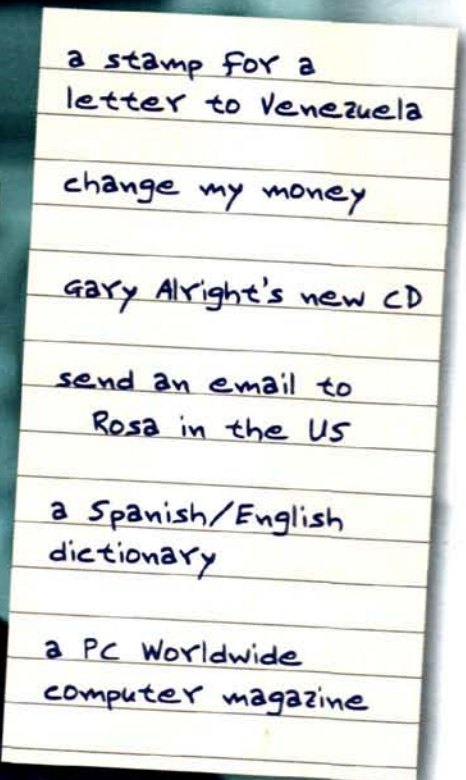 a stamp for a
letter to Venezuela
change my money
Gary Alright's new CD
send an email to
Rosa in the US
a Spanish/English
dictionary
a PC Worldwide
computer magazine